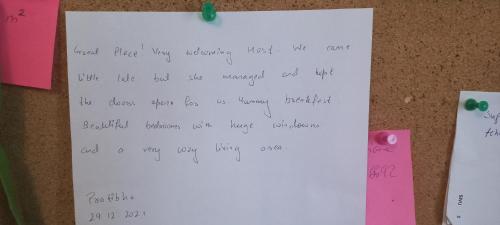 m²
Great Place! Very welcoming Host. We came
little late but she managed and kept
the doors open for us Yummy breakfast
Beautiful bedrooms with huge windows
and a very cozy living area.
Pratibha
29 12 2021